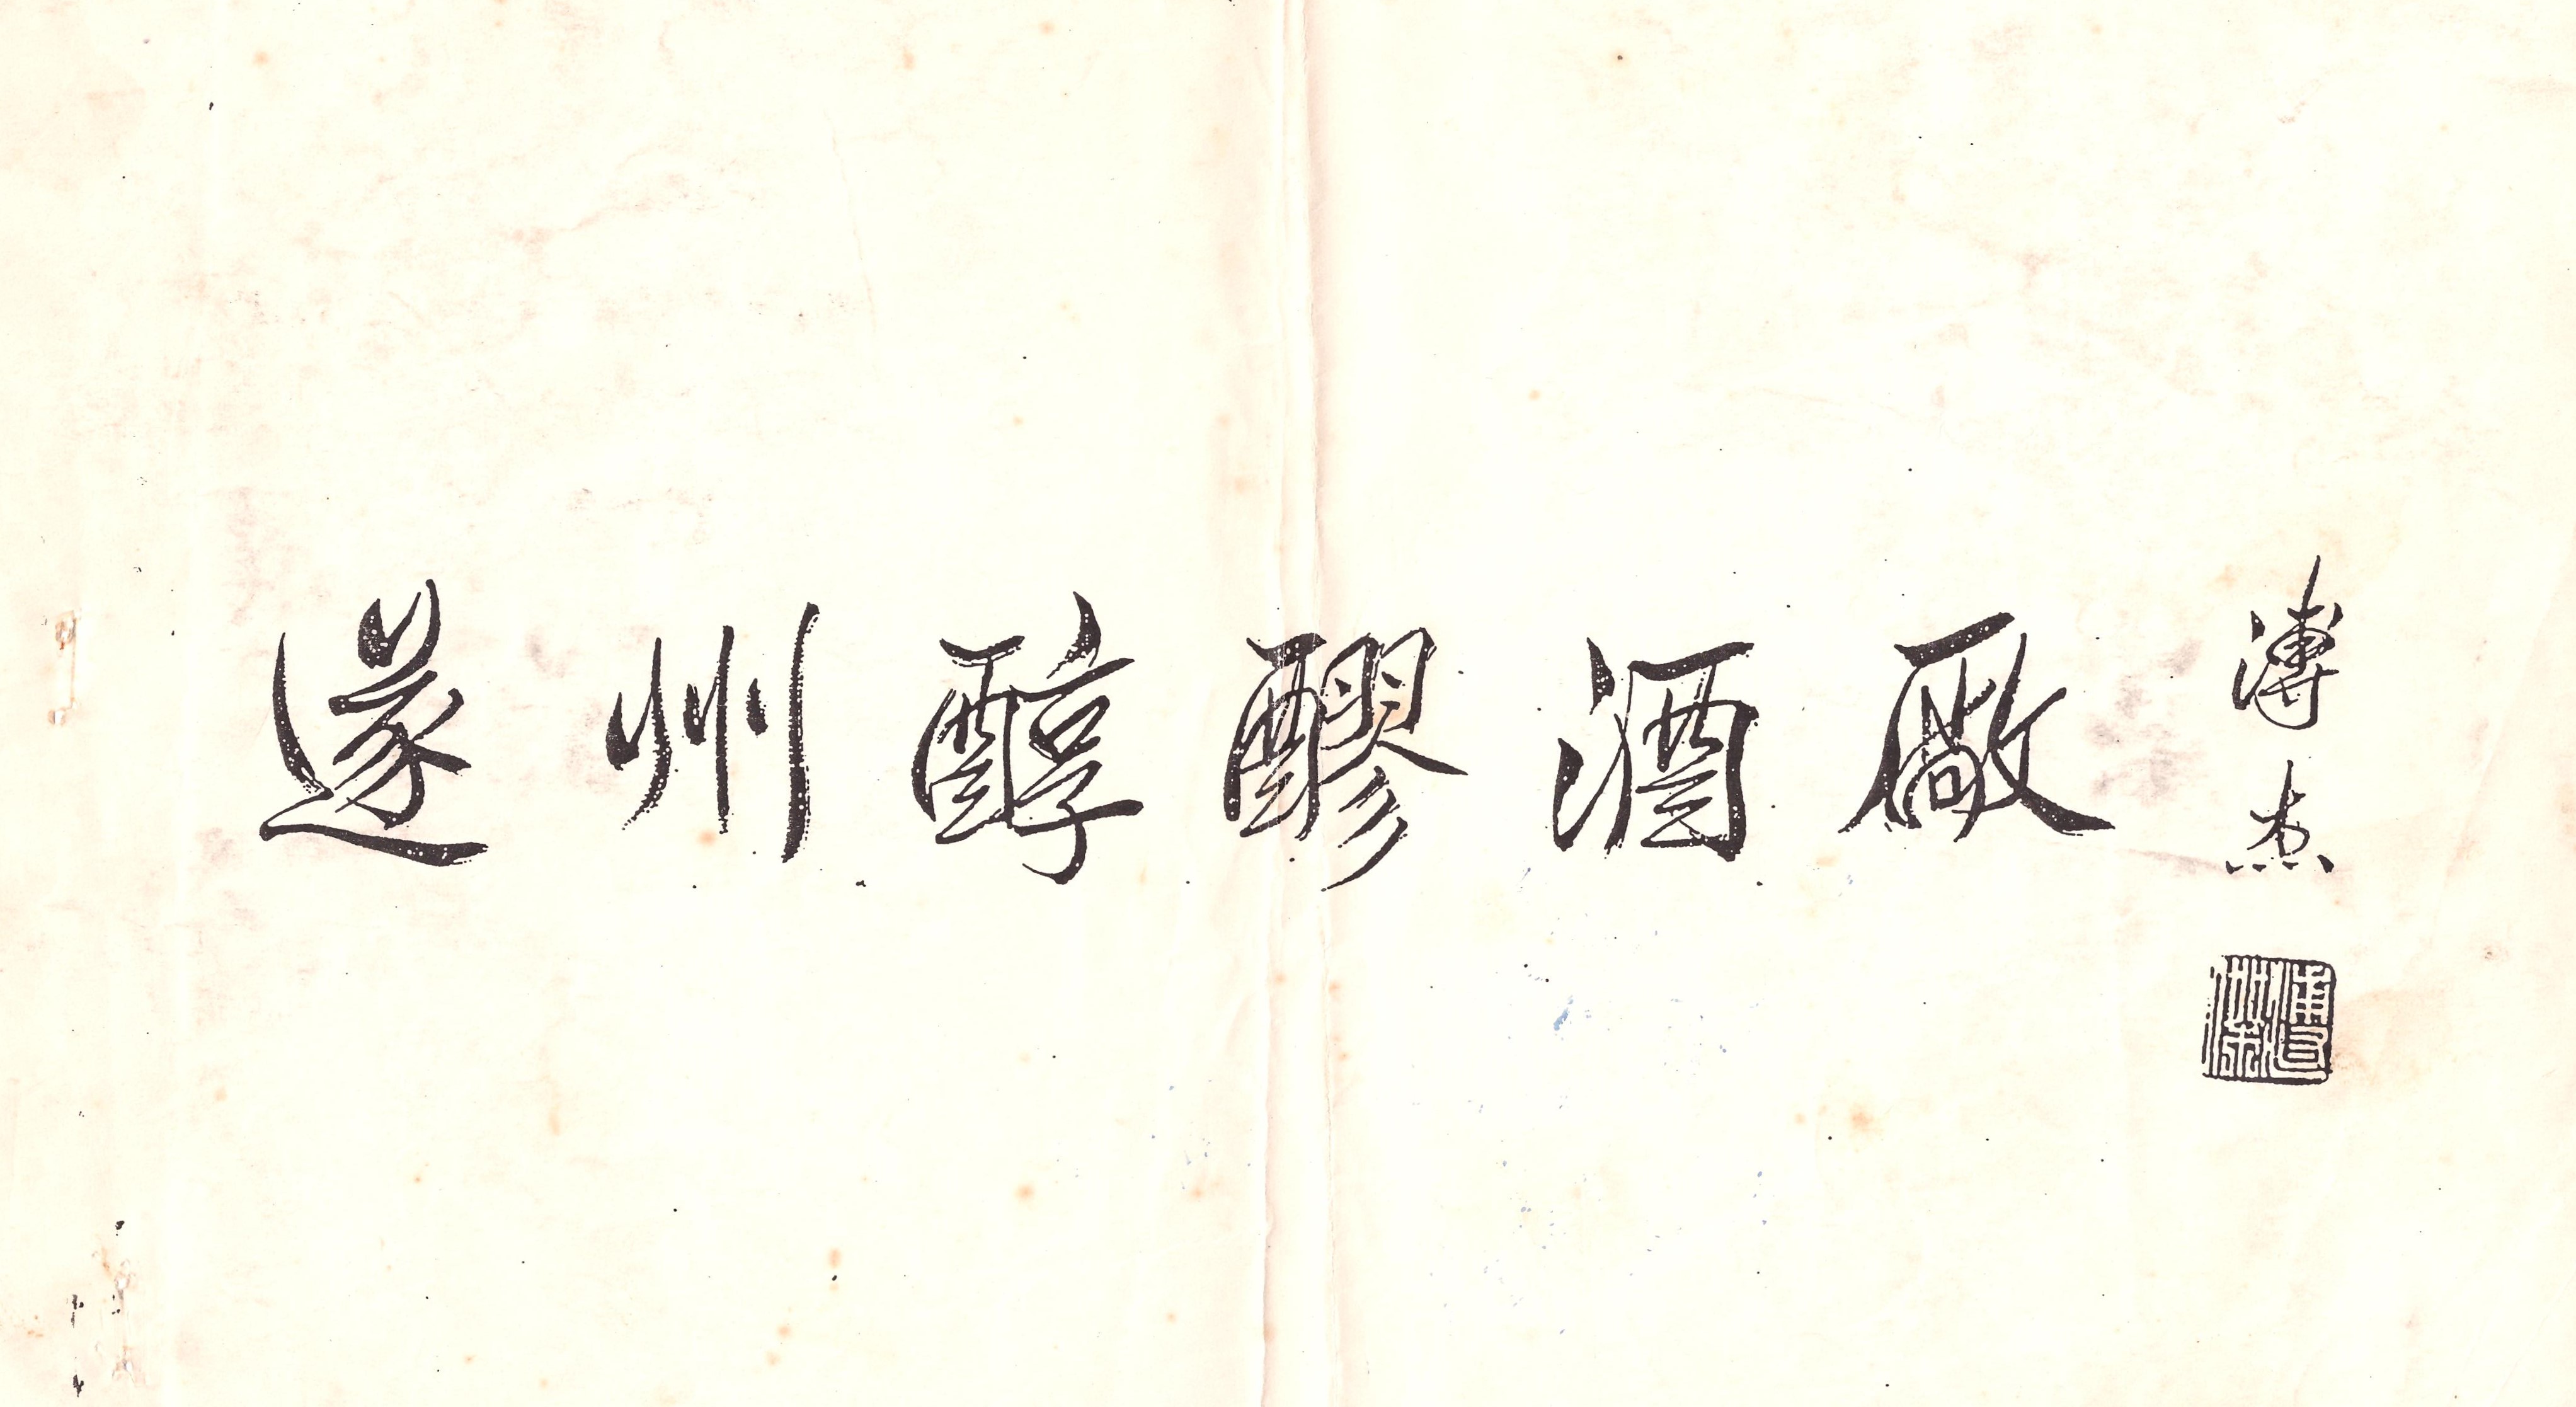 遂州醇醪酒廠
溥杰
溥傑